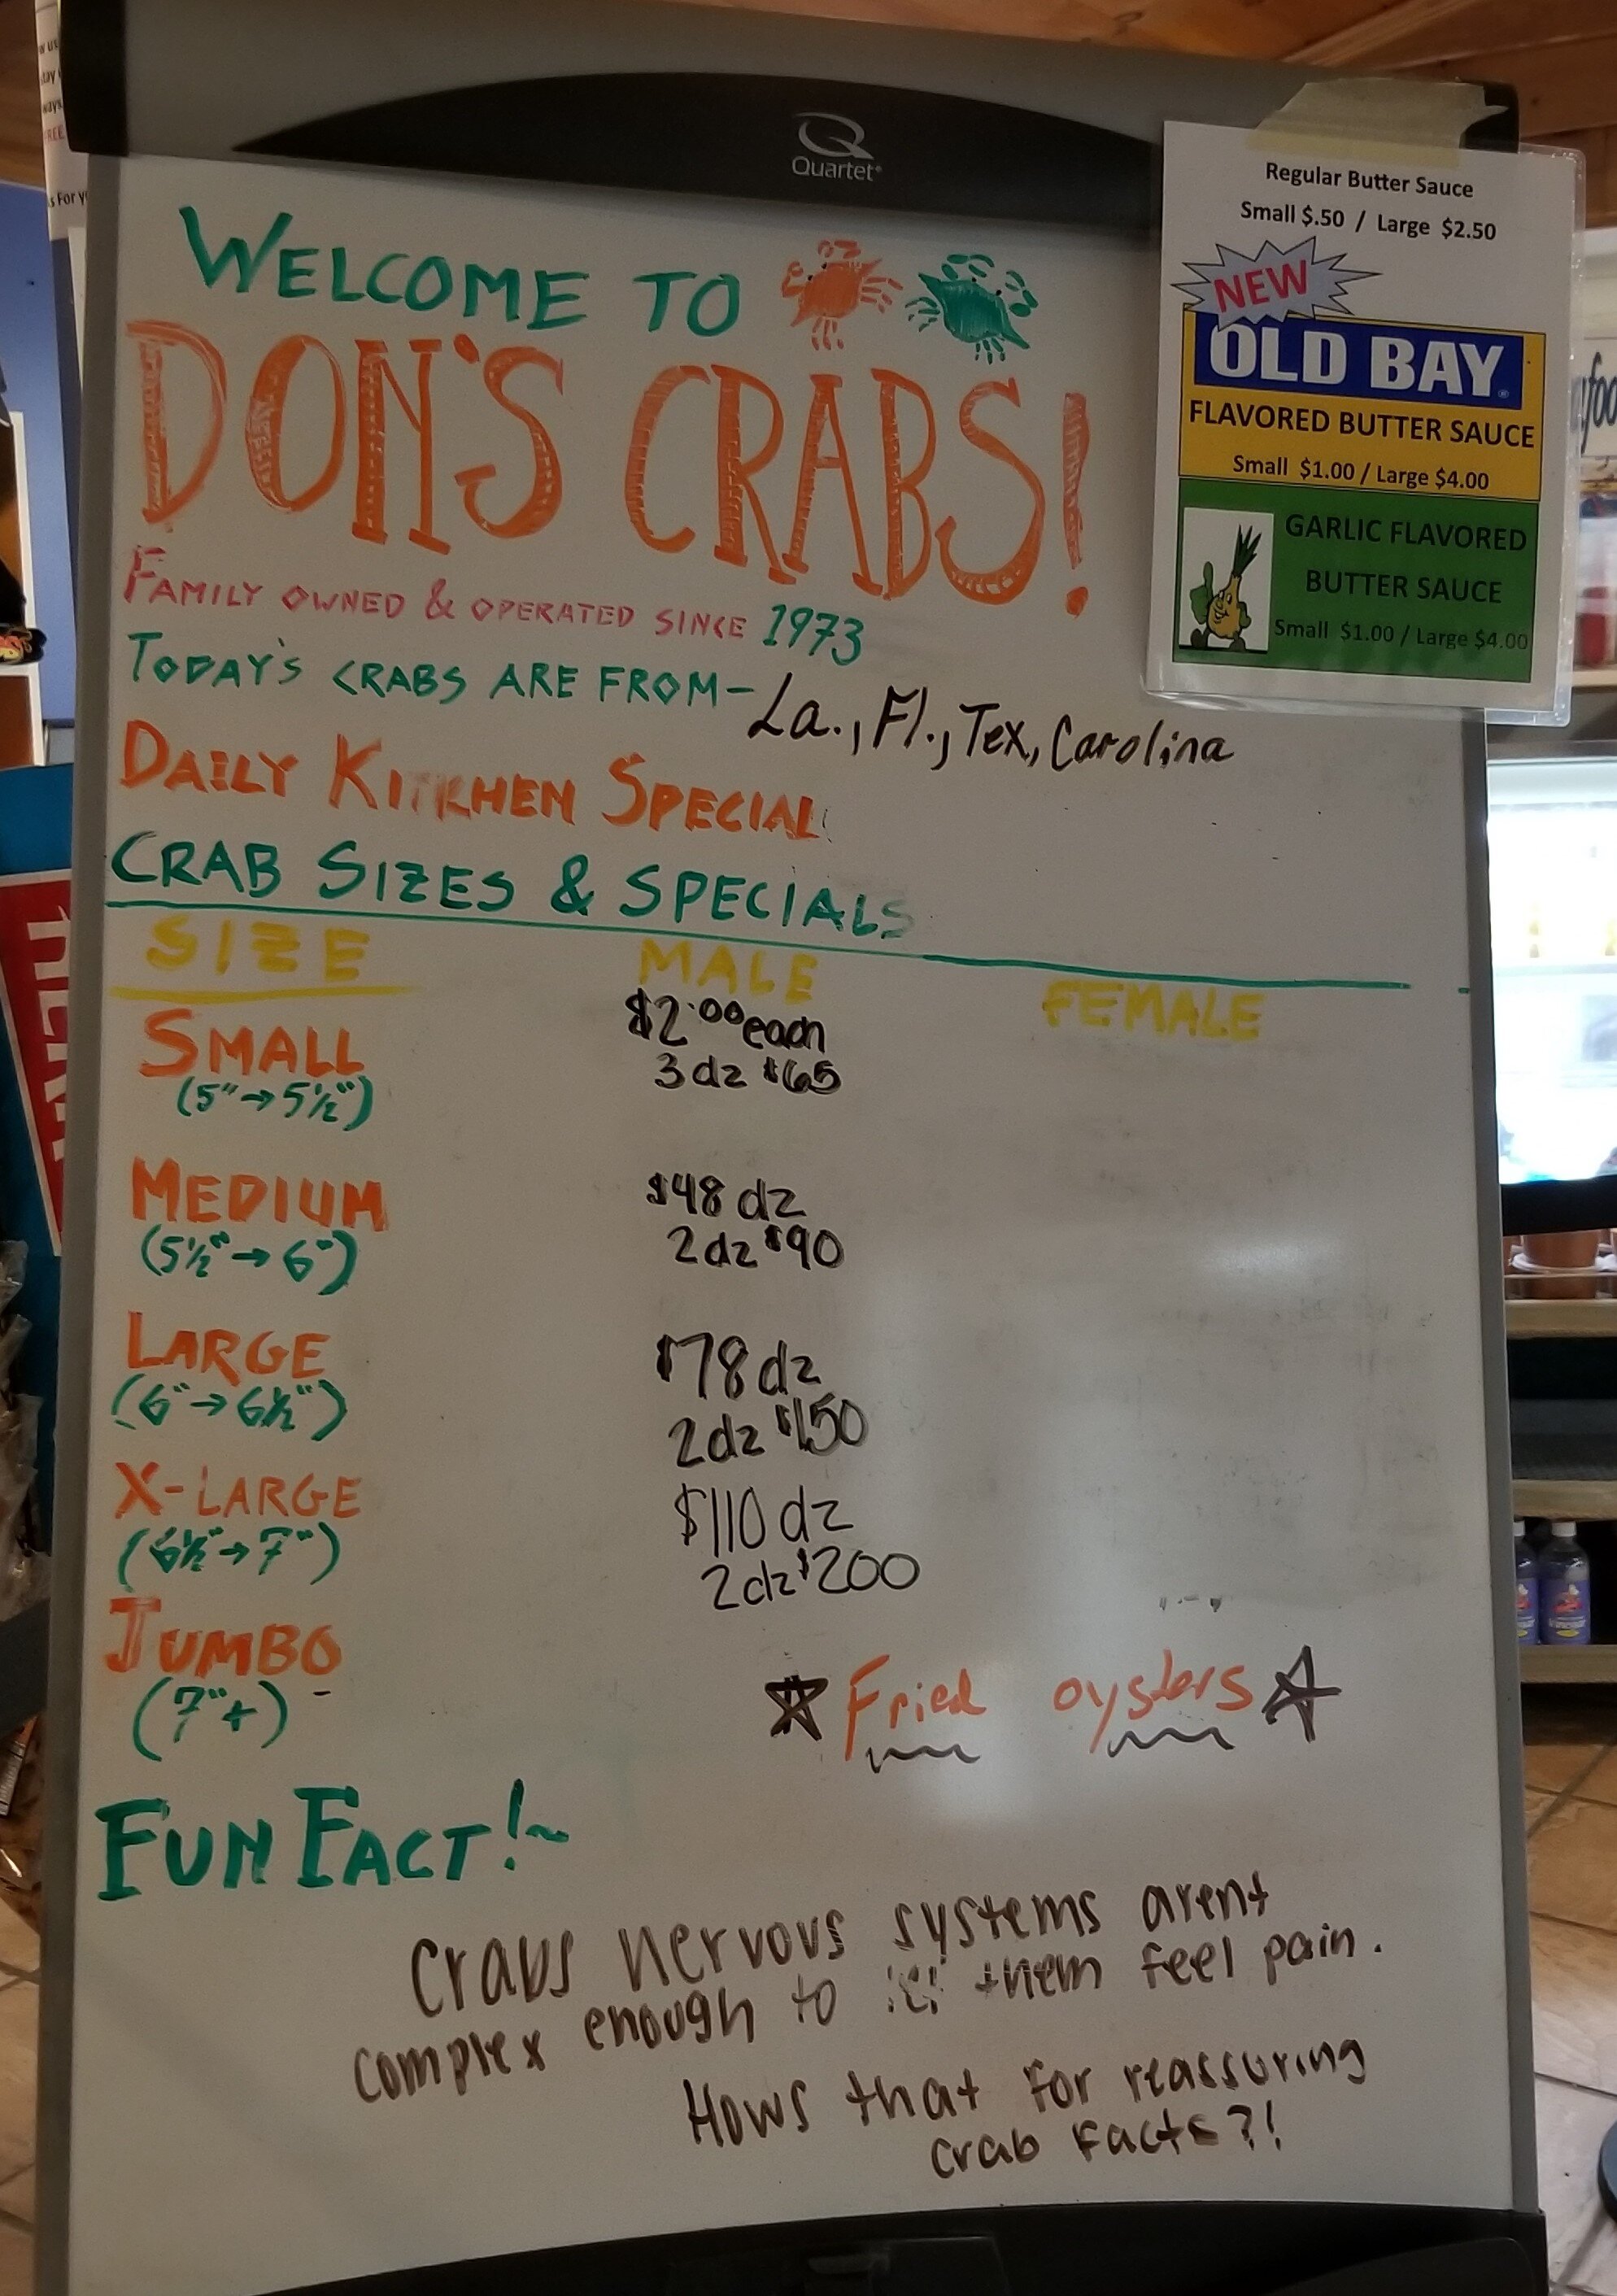 Quartet
Regular Butter Sauce
Small $.50 / Large $2.50
NEW
OLD BAY
FLAVORED BUTTER SAUCE
Small $1.00 / Large $4.00
GARLIC FLAVORED
BUTTER SAUCE
Small $1.00 / Large $4.00
WELCOME TO
DON'S CRABS!
FAMILY OWNED & OPERATED SINCE 1973
TODAY'S CRABS ARE FROM- La., Fl., Tex, Carolina
DAILY KITCHEN SPECIAL
CRAB SIZES & SPECIALS
SIZE MALE FEMALE
SMALL $2.00 each
(5"→5½") 3dz $65
MEDIUM $48 dz
(5½"→6") 2dz $90
LARGE $78 dz
(6"→6½") 2dz $150
X-LARGE $110 dz
(6½"→7") 2dz $200
JUMBO
(7"+) -
Fried oysters
FUN FACT!~
Crabs nervous systems arent
complex enough to let them feel pain.
Hows that for reassuring
crab facts?!